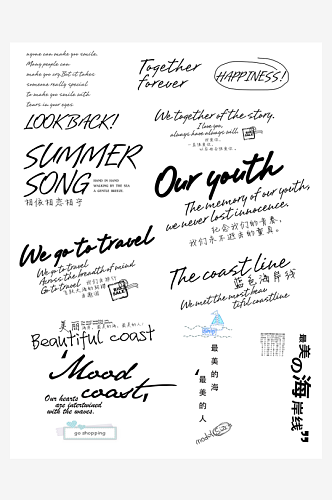 anyone can make you smile.
Many people can
make you cry. But it takes
someone really special
to make you smile with
tears in your eyes.
Together
forever
HAPPINESS!
LOOK BACK!
We together of the story.
I love you,
always have always will.
SUMMER
SONG
HAND IN HAND
WALKING BY THE SEA
A GENTLE BREEZE.
相依相恋相守
Our youth
The memory of our youth,
we never lost innocence.
纪念我们的青春,
我们永不逝去的童真。
We go to travel
We go to travel
Across the breadth of mind
Go to travel
The coast line
蓝色海岸线
We meet the most beau
tiful coastline
美丽
Beautiful coast
'Mood
coast,
Our hearts
are intertwined
with the waves.
go shopping
最美的海
最美的人
最美の海岸线